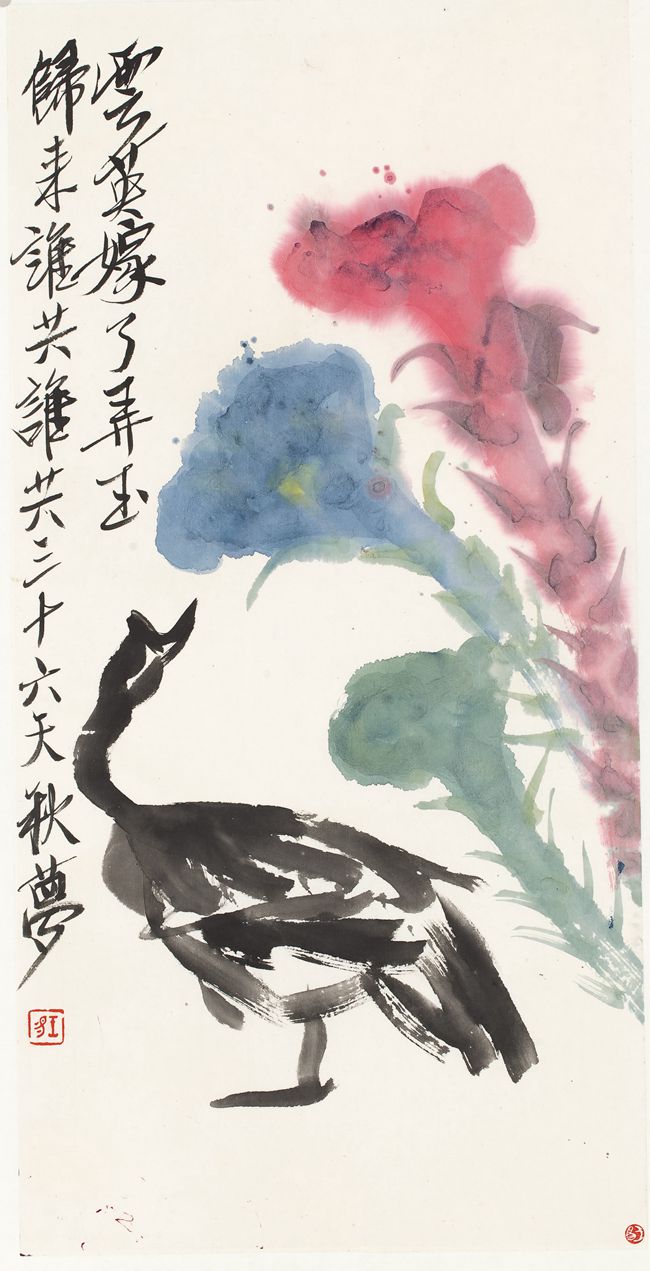 雲英嫁了弄玉
歸来誰共誰共三十六天秋夢